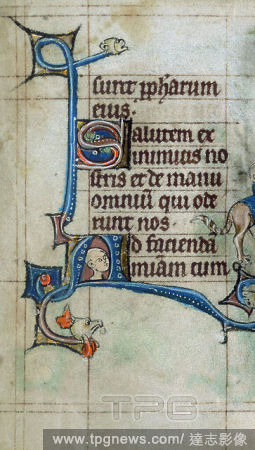 sunt ppharum
eius.
Salutem ex
inimicis no
stris et de manu
omniū qui ode
runt nos.
Ad faciendā
miam cum
TPG
www.tpgnews.com/達志影像